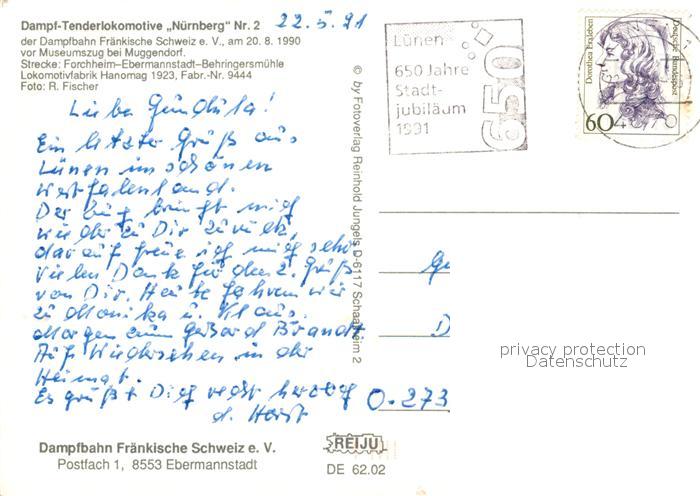 Dampf-Tenderlokomotive „Nürnberg“ Nr. 2
22.5.91
der Dampfbahn Fränkische Schweiz e. V., am 20. 8. 1990
vor Museumszug bei Muggendorf.
Strecke: Forchheim–Ebermannstadt–Behringersmühle
Lokomotivfabrik Hanomag 1923, Fabr.-Nr. 9444
Foto: R. Fischer
Liebe Gundula!
Ein letzter Gruß aus
Lünen im schönen
Westfalenland.
Der Zug bringt mich
wieder zu Dir zurück,
darauf freue ich mich sehr
Vielen Dank für den 2. Gruß
von Dir. Heute fahren wir
zu Monika u. Klaus.
Morgen zum Gerhard Brandt.
Auf Wiedersehen in der
Heimat.
Es grüßt Dich recht herzlich
d. Horst
Dampfbahn Fränkische Schweiz e. V.
Postfach 1, 8553 Ebermannstadt
© by Fotoverlag Reinhold Jungels D-6117 Schaafheim 2
REIJU
DE 62.02
Lünen
650 Jahre
Stadt-
jubiläum
1991
650
Dorothea Erxleben
Deutsche Bundespost
60
Ge
D
O-273
privacy protection
Datenschutz